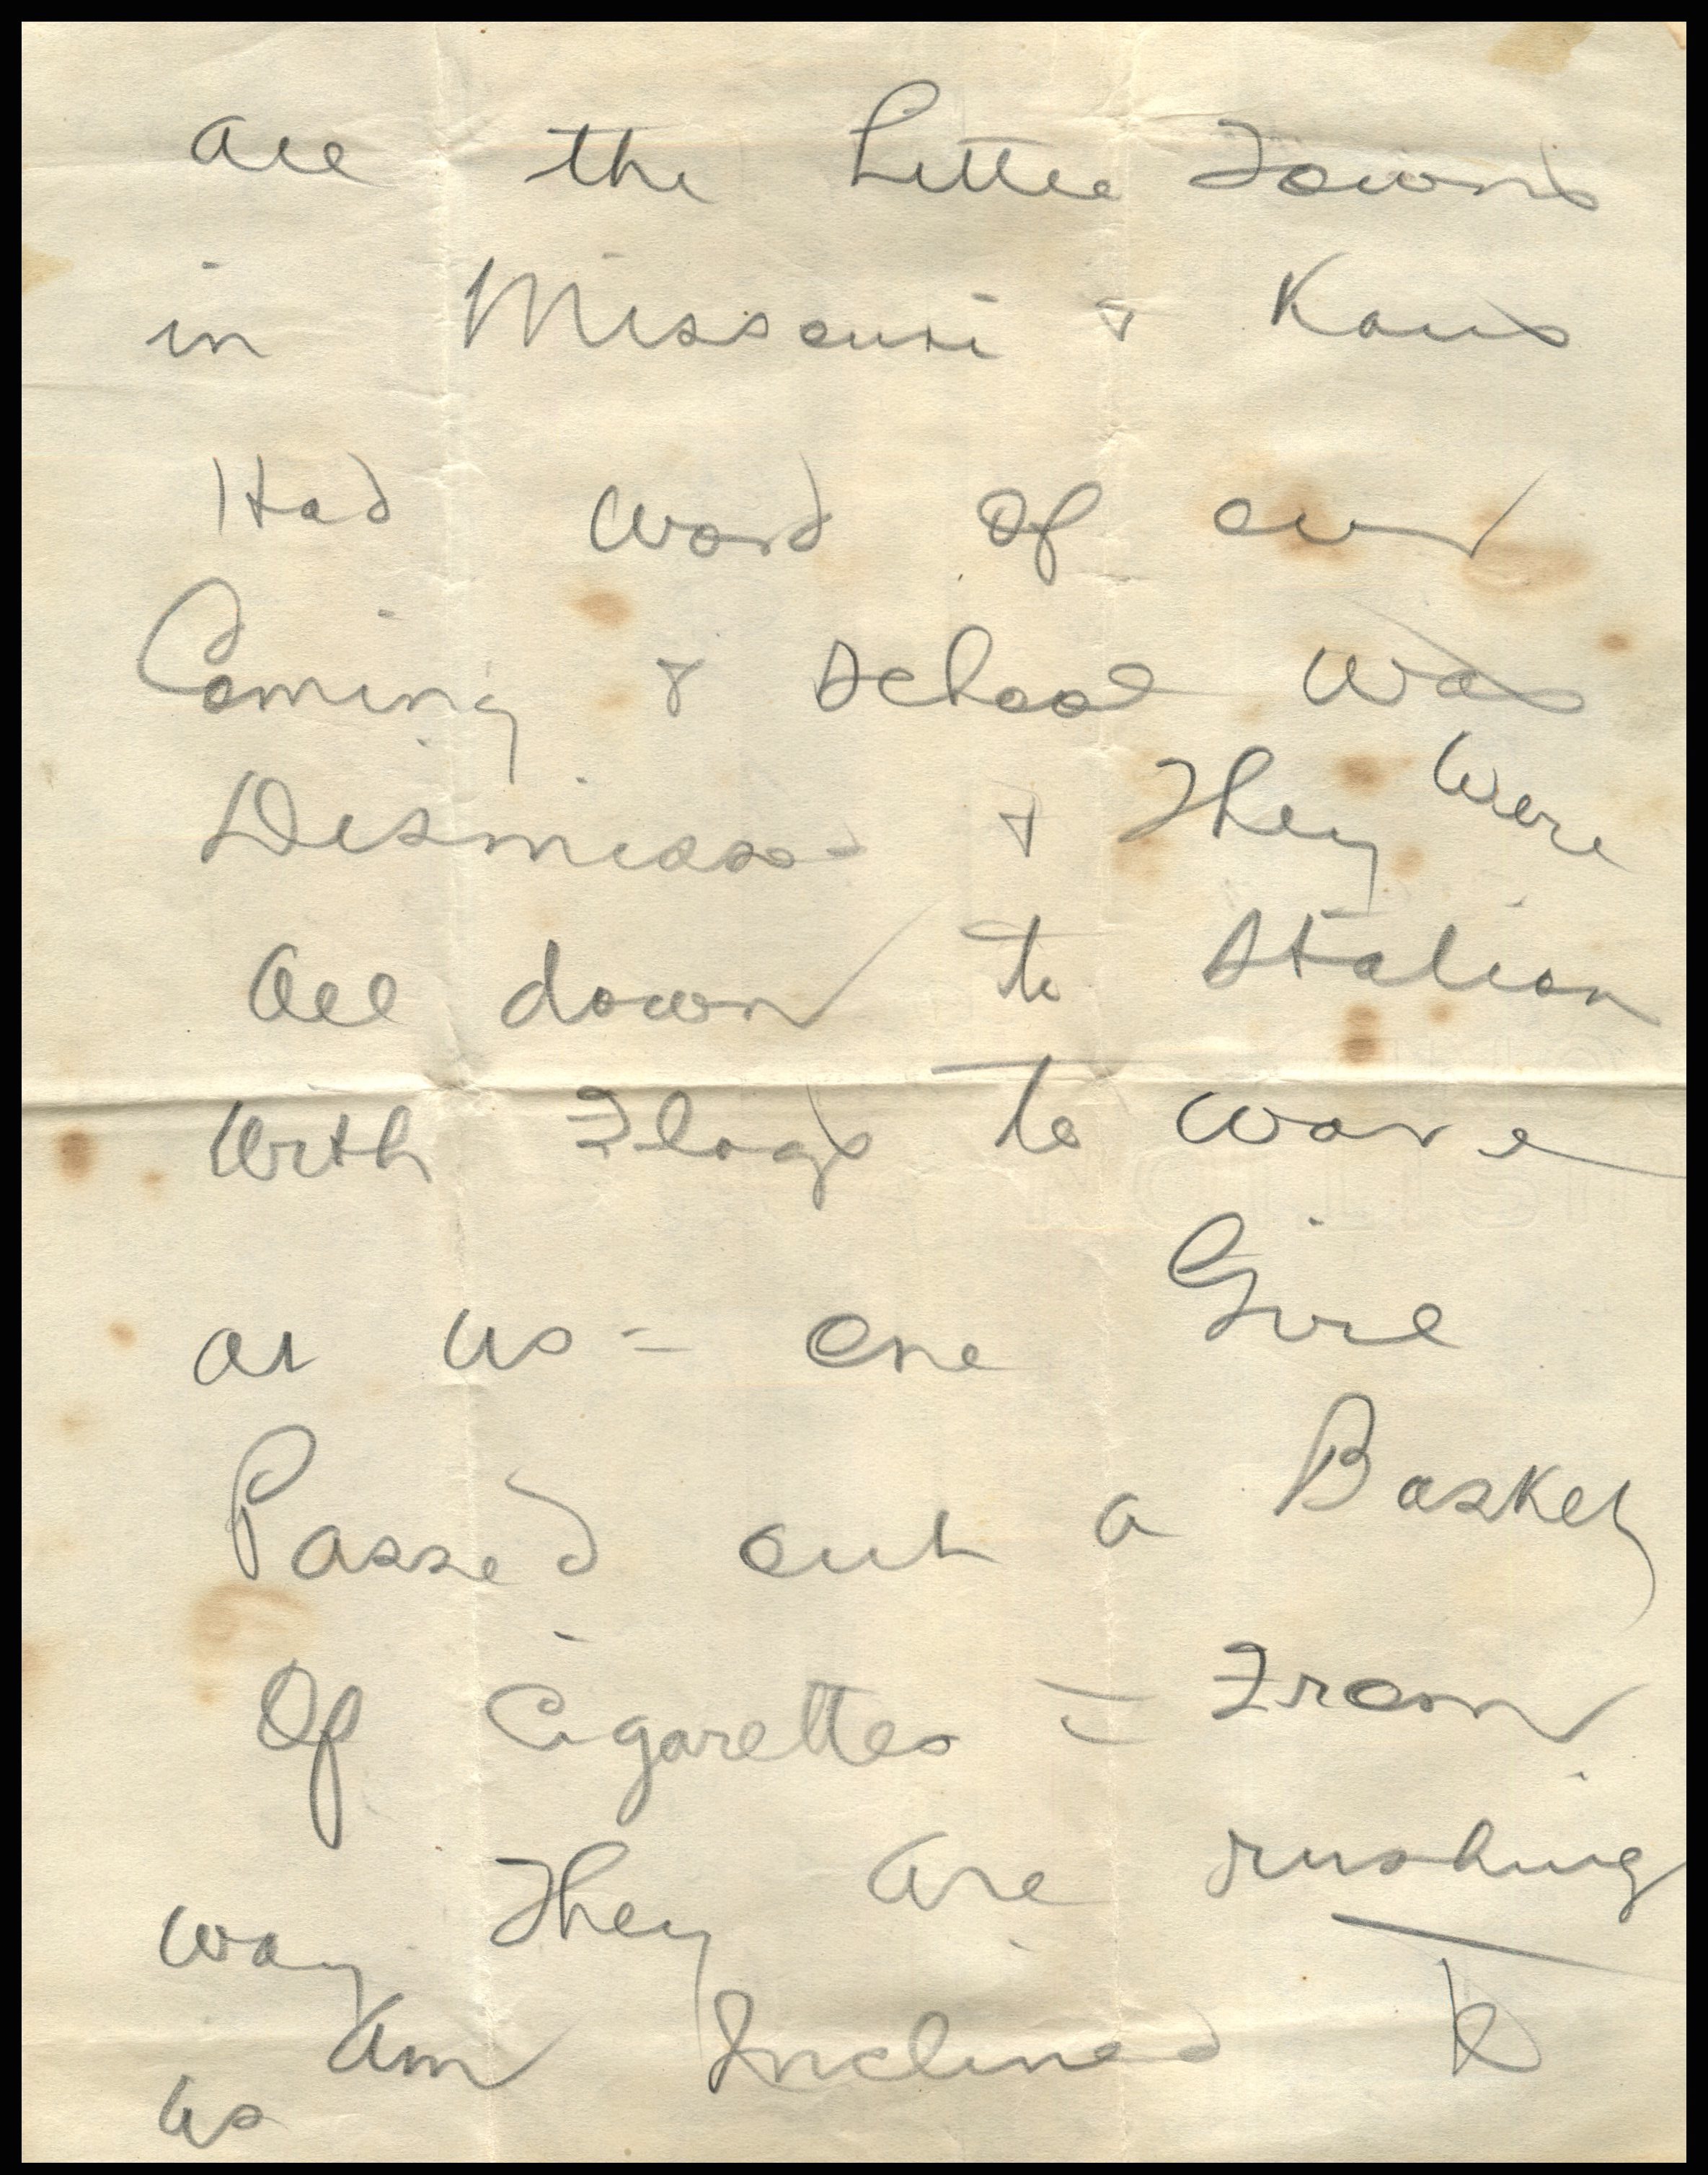 all the Little Towns
in Missouri & Kans
Had word of our
Coming & school was
Dismissed & They were
All down to station
With Flags to wave
at us - one Girl
Passed out a Basket
Of Cigarettes - From
way They are rushing
us Am Inclined to